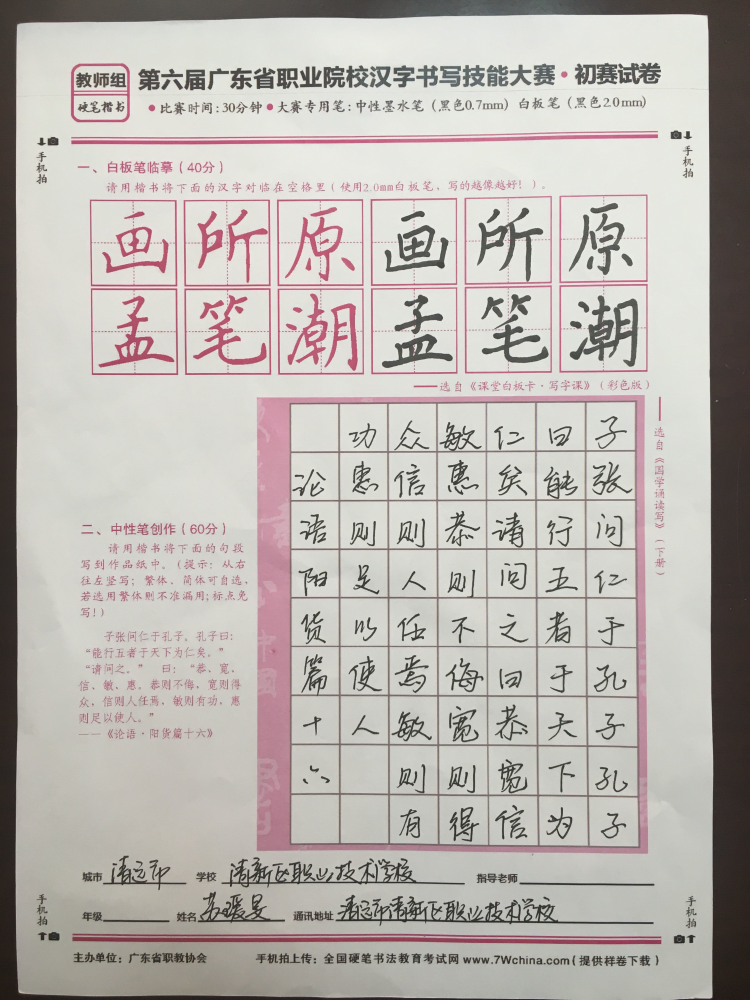 教师组
硬笔楷书
第六届广东省职业院校汉字书写技能大赛·初赛试卷
●比赛时间:30分钟●大赛专用笔:中性墨水笔(黑色0.7mm) 白板笔(黑色2.0mm)
手机拍
手机拍
一、白板笔临摹(40分)
请用楷书将下面的汉字对临在空格里(使用2.0mm白板笔、写的越像越好!)。
画所原画所原
孟笔潮孟笔潮
——选自《课堂白板卡·写字课》(彩色版)
——选自《国学诵读写》(下册)
二、中性笔创作(60分)
请用楷书将下面的句段
写到作品纸中。(提示:从右
往左竖写;繁体、简体可自选,
若选用繁体则不准漏用;标点免
写!)
子张问仁于孔子。孔子曰:
“能行五者于天下为仁矣。”
“请问之。” 曰:“恭、宽、
信、敏、惠。恭则不侮,宽则得
众,信则人任焉,敏则有功,惠
则足以使人。”
——《论语·阳货篇十六》
子张问仁于孔子孔子
曰能行五者于天下为
仁矣请问之曰恭宽信
敏惠恭则不侮宽则得
众信则人任焉敏则有
功惠则足以使人
论语阳货篇十六
城市 清远市 学校 清新区职业技术学校 指导老师
年级 姓名 苏 通讯地址 清远市清新区职业技术学校
手机拍
手机拍
主办单位:广东省职教协会 手机拍上传:全国硬笔书法教育考试网 www.7Wchina.com(提供样卷下载)